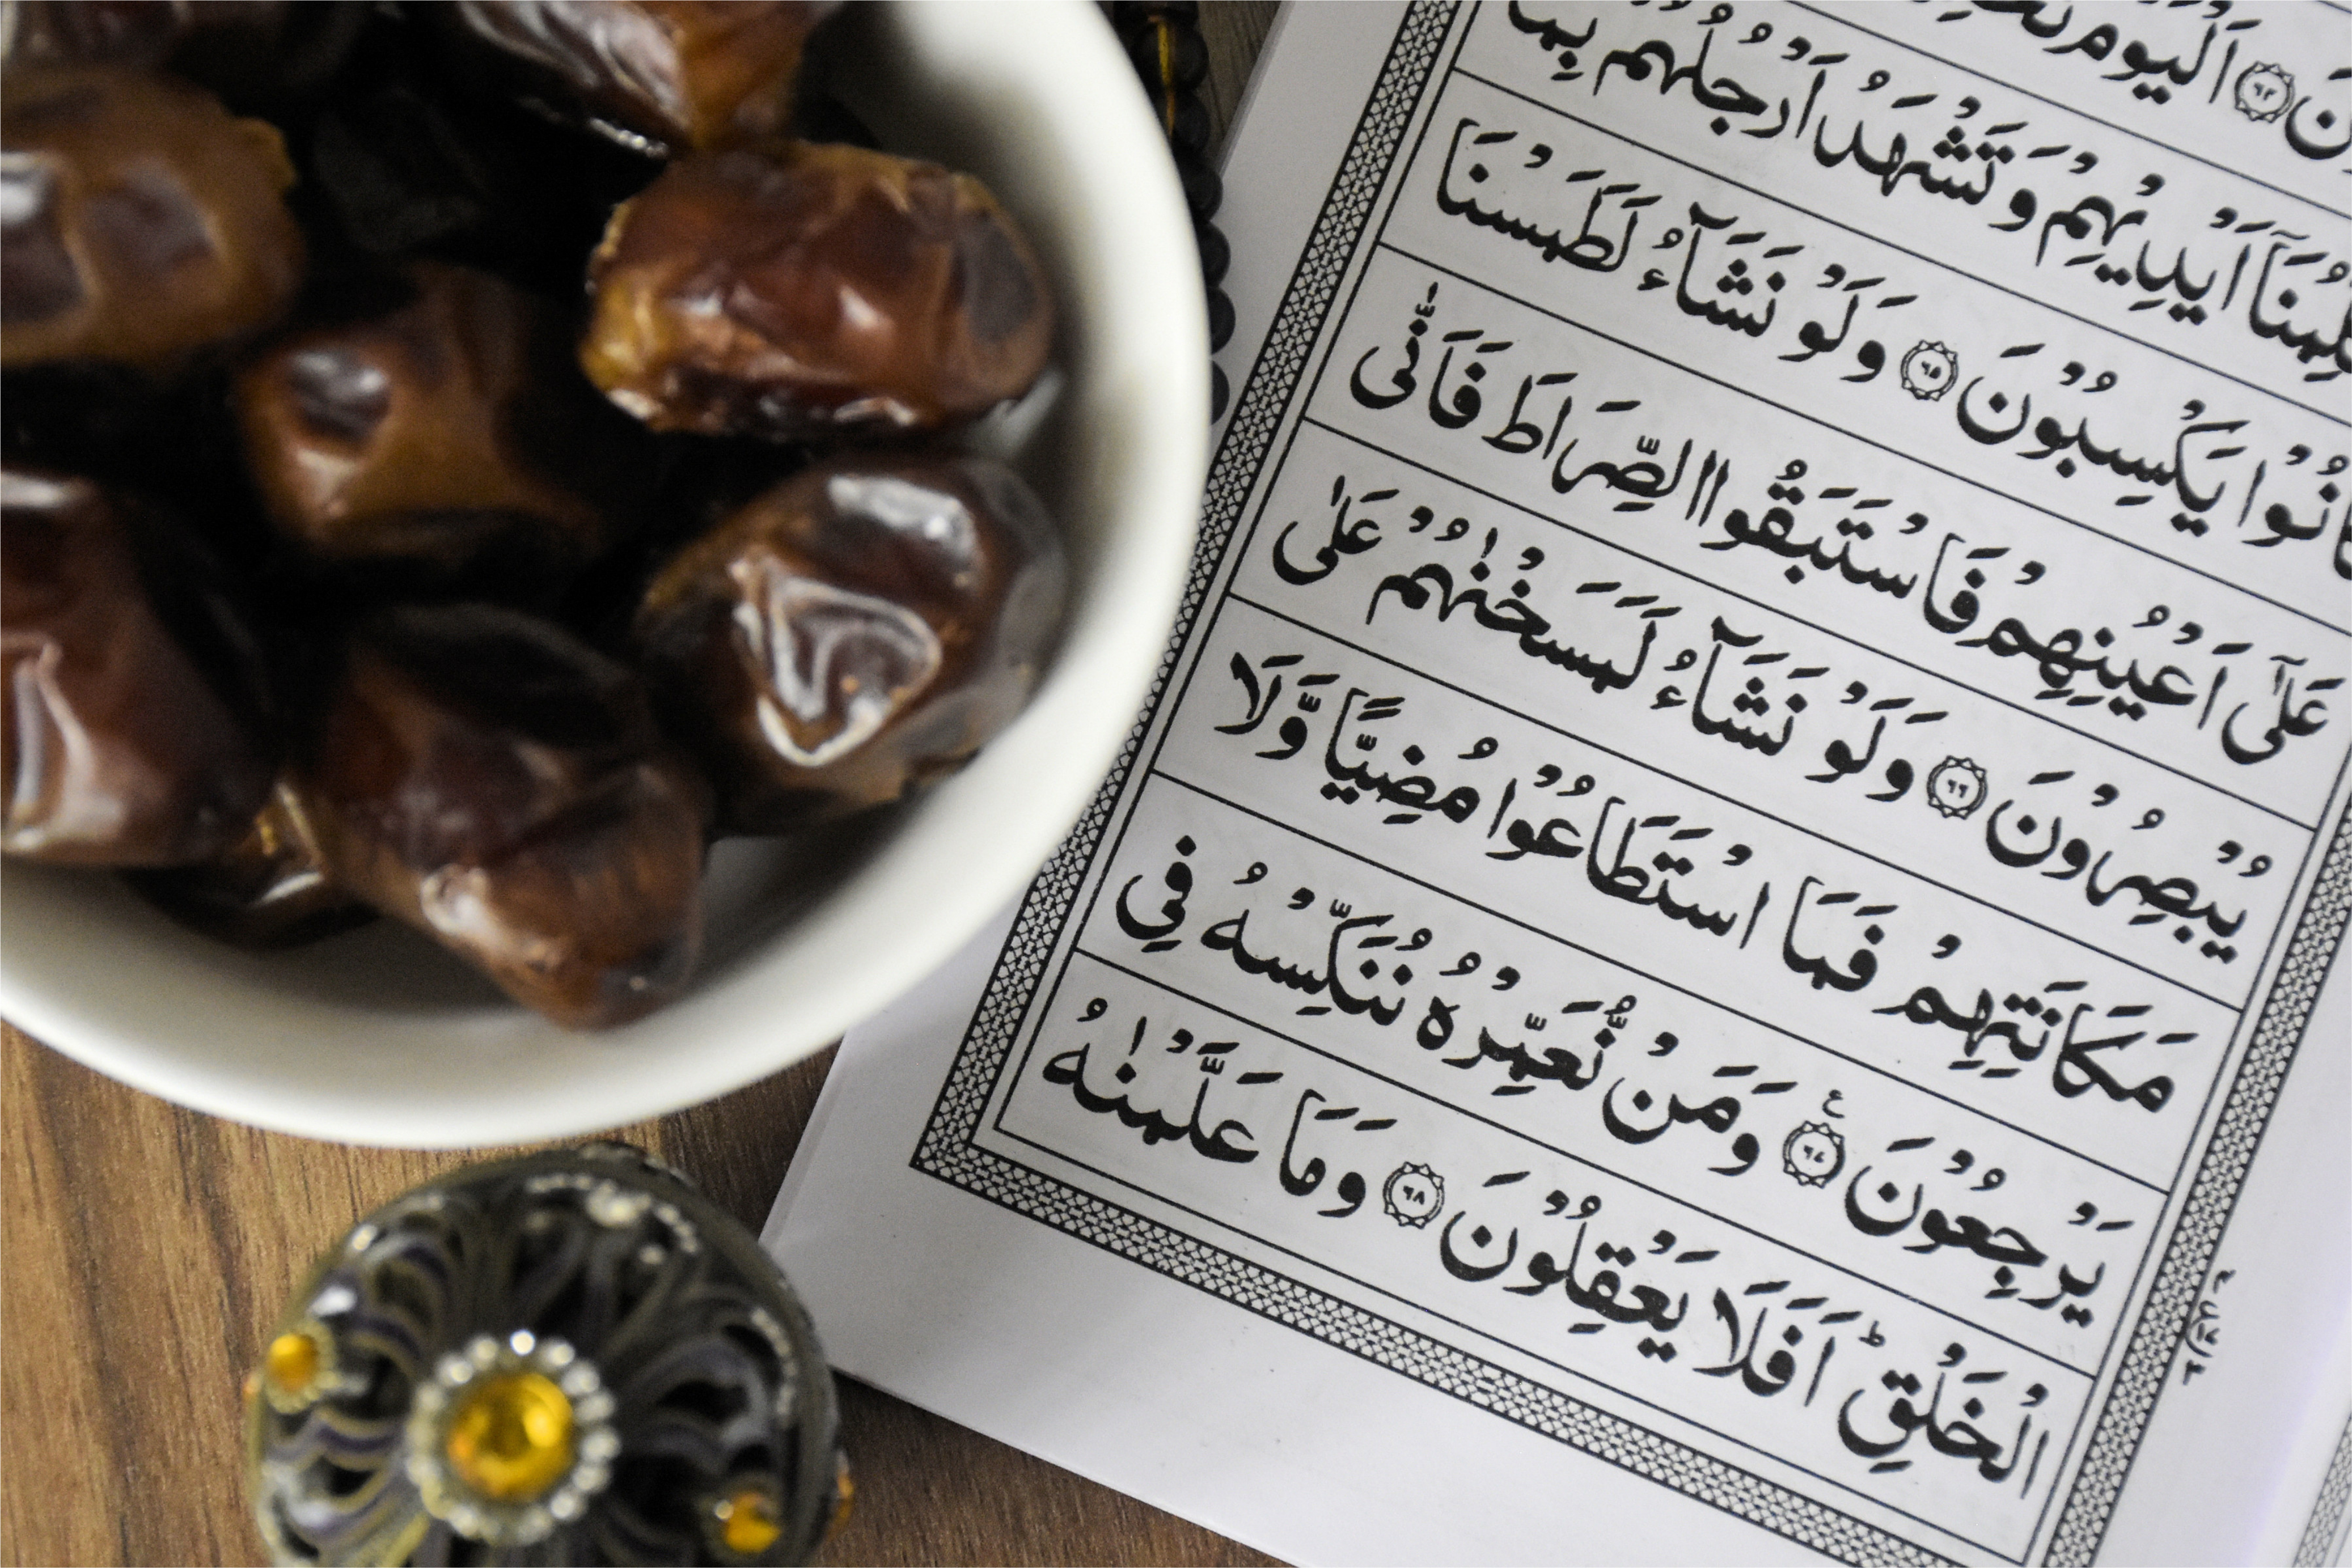 نَ ﴿۶۴﴾ اَلْیَوْمَ
اَیْدِیْهِمْ وَ تَشْهَدُ اَرْجُلُهُمْ بِمَا
یَكْسِبُوْنَ ﴿۶۵﴾ وَ لَوْ نَشَآءُ لَطَمَسْنَا
عَلٰۤی اَعْیُنِهِمْ فَاسْتَبَقُوا الصِّرَاطَ فَاَنّٰی
یُبْصِرُوْنَ ﴿۶۶﴾ وَ لَوْ نَشَآءُ لَمَسَخْنٰهُمْ عَلٰی
مَكَانَتِهِمْ فَمَا اسْتَطَاعُوْا مُضِیًّا وَّ لَا
یَرْجِعُوْنَ ﴿۶۷﴾ ع وَ مَنْ نُّعَمِّرْهُ نُنَكِّسْهُ فِی
الْخَلْقِ ؕ اَفَلَا یَعْقِلُوْنَ ﴿۶۸﴾ وَ مَا عَلَّمْنٰهُ